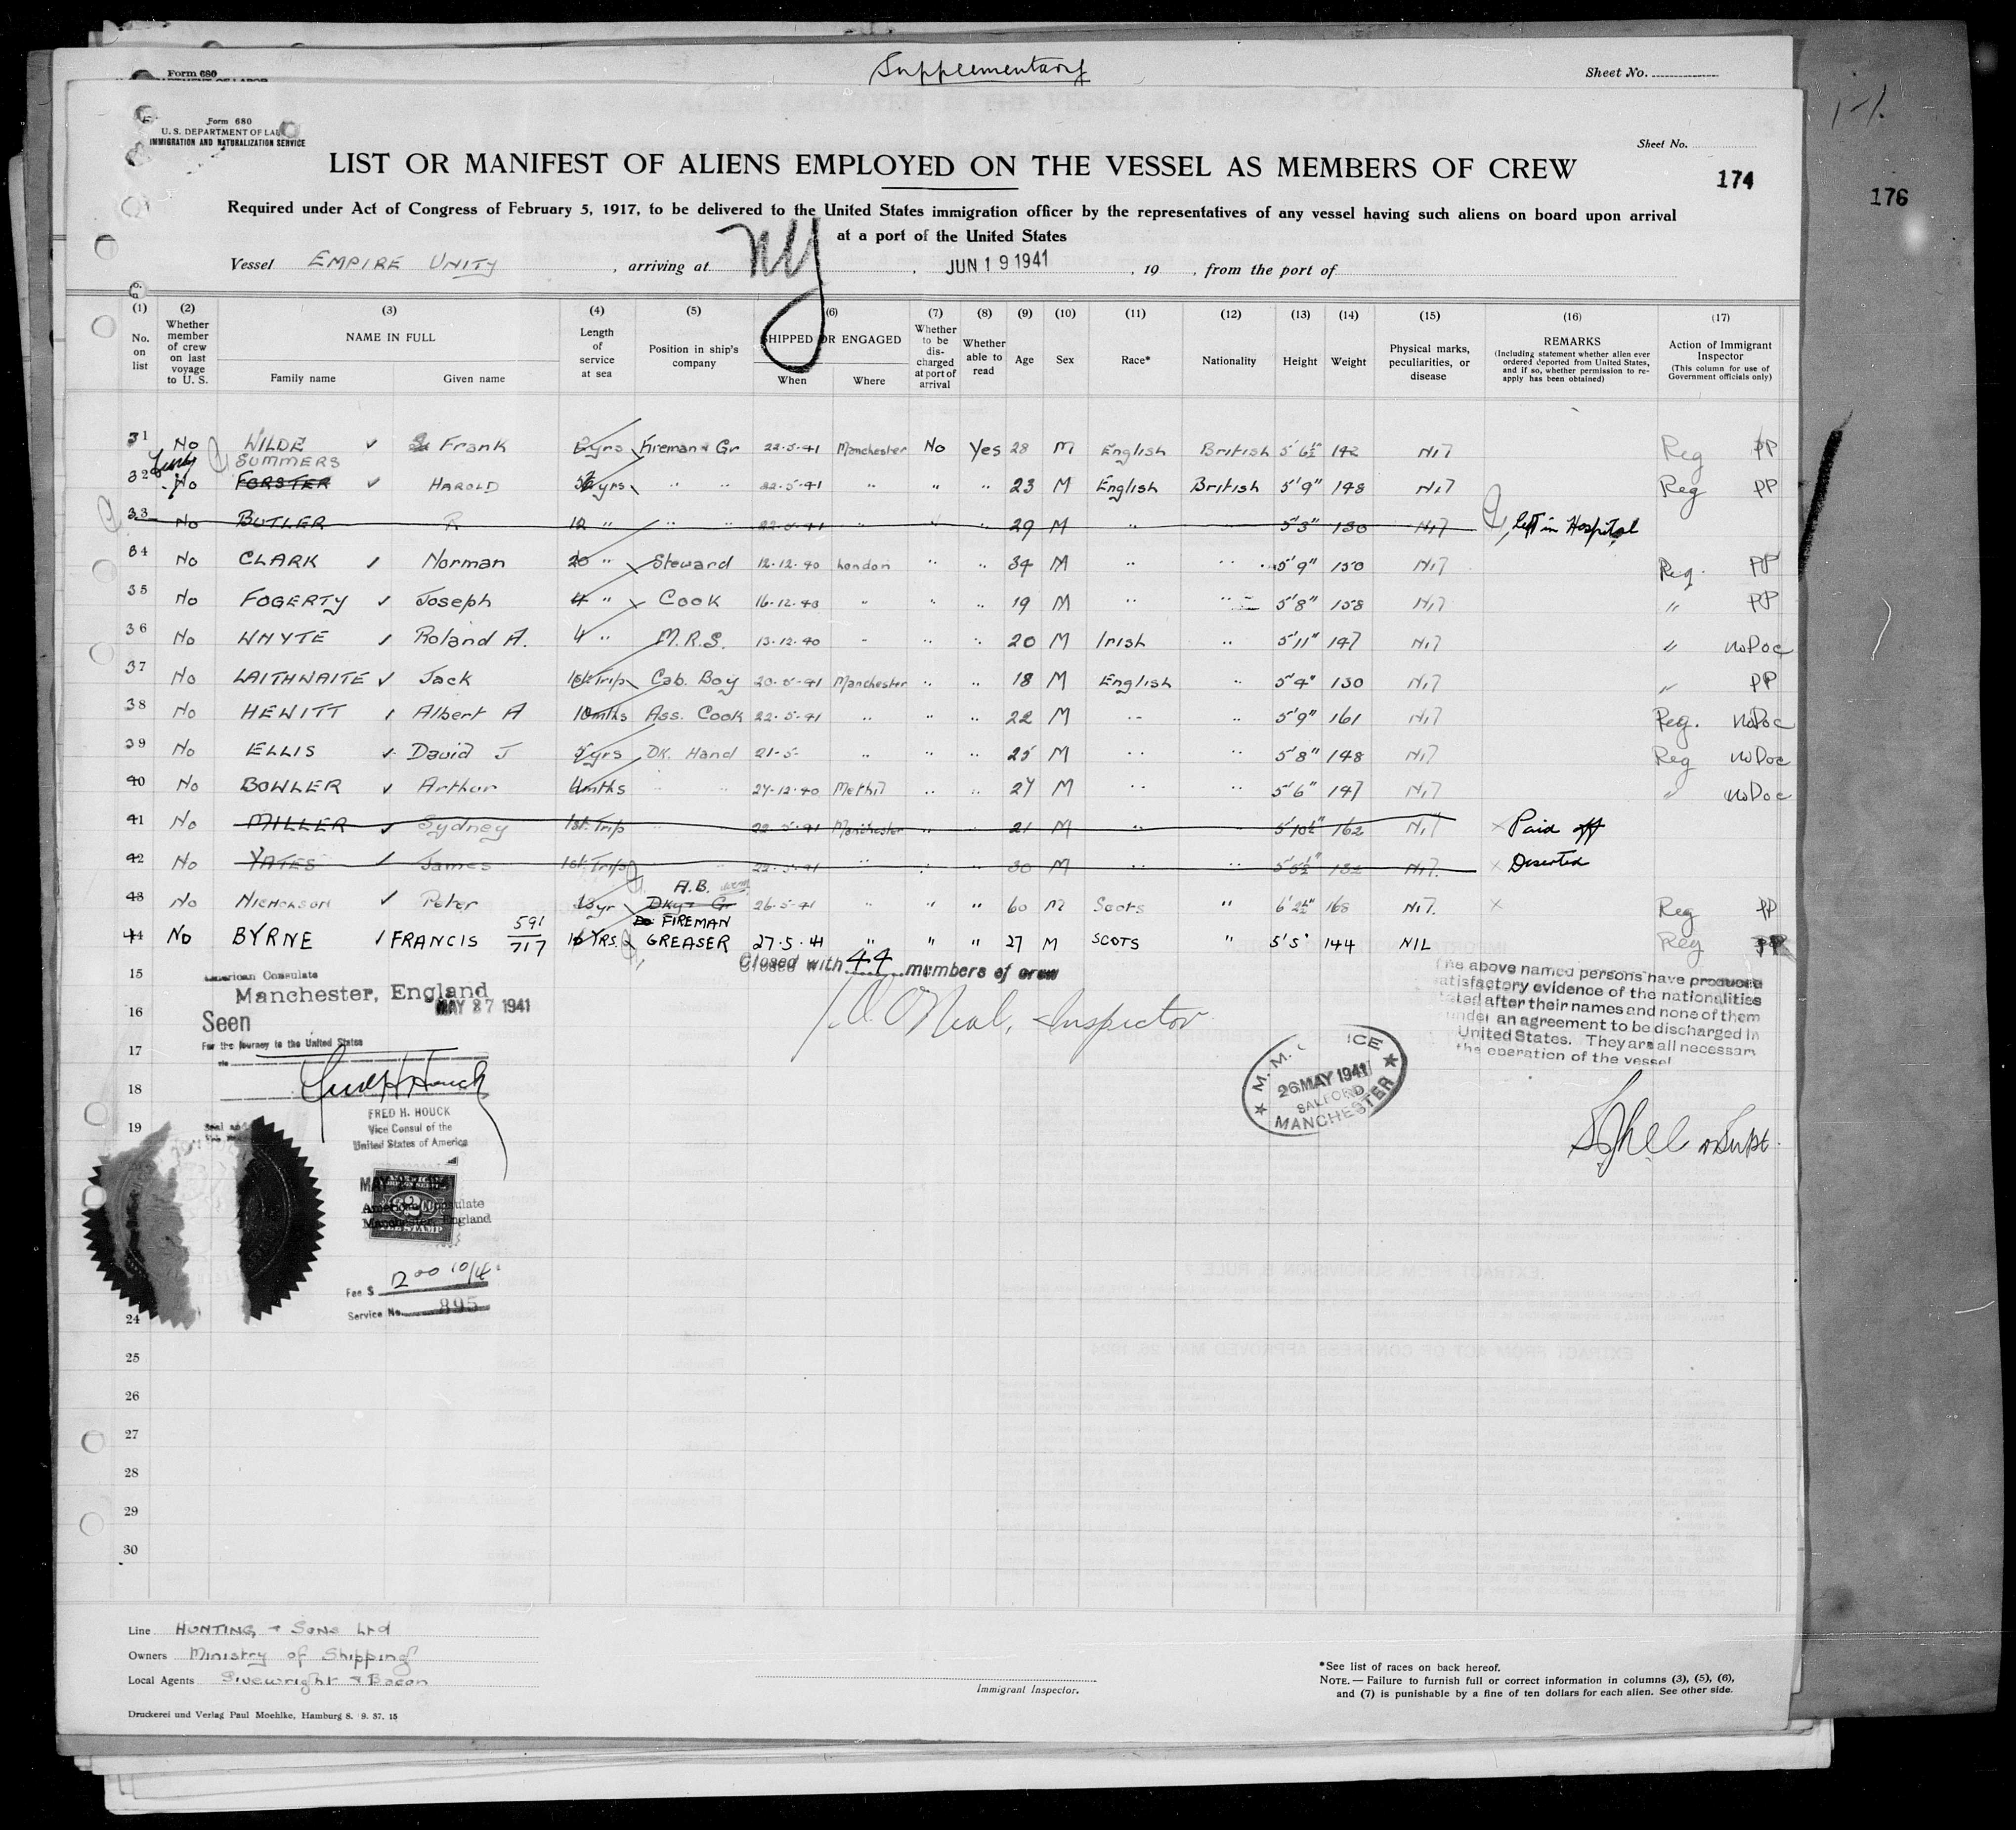 Supplementary
Form 680
Sheet No.
Form 680
U. S. DEPARTMENT OF LA
IMMIGRATION AND NATURALIZATION SERVICE
Sheet No.
LIST OR MANIFEST OF ALIENS EMPLOYED ON THE VESSEL AS MEMBERS OF CREW
174
176
Required under Act of Congress of February 5, 1917, to be delivered to the United States immigration officer by the representatives of any vessel having such aliens on board upon arrival
at a port of the United States
Vessel EMPIRE UNITY, arriving at NY, JUN 19 1941, 19 , from the port of
(1) (2) (3) (4) (5) (6) (7) (8) (9) (10) (11) (12) (13) (14) (15) (16) (17)
No. on list
Whether member of crew on last voyage to U. S.
NAME IN FULL
Family name
Given name
Length of service at sea
Position in ship's company
SHIPPED OR ENGAGED
When
Where
Whether to be discharged at port of arrival
Whether able to read
Age
Sex
Race*
Nationality
Height
Weight
Physical marks, peculiarities, or disease
REMARKS
(Including statement whether alien ever ordered deported from United States, and if so, whether permission to reapply has been obtained)
Action of Immigrant Inspector
(This column for use of Government officials only)
31 No WILDE Frank 2yrs Fireman & Gr 22-5-41 Manchester No Yes 28 M English British 5'6½" 142 Nil Reg PP
SUMMERS
32 No FORSTER HAROLD yrs " " 22-5-41 " " " 23 M English British 5'9" 148 Nil Reg PP
33 No BUTLER R 12 " " " 22-5-41 " " " 29 M " 5'3" 130 Nil Left in Hospital
34 No CLARK Norman 20 " Steward 12-12-40 London " " 34 M " " 5'9" 150 Nil Reg. PP
35 No FOGERTY Joseph 4 " Cook 16-12-40 " " " 19 M " " 5'8" 158 Nil " PP
36 No WHYTE Roland A. 4 " M.R.S. 13-12-40 " " " 20 M Irish " 5'11" 147 Nil " no Doc
37 No LAITHWAITE Jack 1st Trip Cab. Boy 20-5-41 Manchester " " 18 M English " 5'4" 130 Nil " PP
38 No HEWITT Albert A 10mths Ass. Cook 22-5-41 " " " 22 M " " 5'9" 161 Nil Reg. no Doc
39 No ELLIS David J yrs DK. Hand 21-5- " " " 25 M " " 5'8" 148 Nil Reg no Doc
40 No BOWLER Arthur 4mths " " 24-12-40 Methil " " 24 M " " 5'6" 147 Nil " no Doc
41 No MILLER Sydney 1st Trip " 22-5-41 Manchester " " 21 M " " 5'10½" 162 Nil Paid off
42 No YATES James 1st Trip " 22-5-41 " " " 30 M " " 5'5½" 132 Nil. Deserted
A.B.
43 No NICHOLSON Peter yr Dky & Gr 26-5-41 " " " 60 M Scots " 6'2½" 168 Nil. Reg PP
Do FIREMAN
44 No BYRNE FRANCIS 591/717 YRS. & GREASER 27.5.41 " " " 27 M SCOTS " 5'5" 144 NIL Reg PP
Closed with 44 members of crew
Inspector
15
16
17
18
19
24
25
26
27
28
29
30
American Consulate
Manchester, England
MAY 27 1941
Seen
For the journey to the United States
Fred H Houck
FRED H. HOUCK
Vice Consul of the
United States of America
American Consulate
Manchester, England
FEE STAMP
Fee $ 2.00
Service No. 895
The above named persons have produced
satisfactory evidence of the nationalities
stated after their names and none of them
under an agreement to be discharged in
United States. They are all necessary
the operation of the vessel
M. M. OFFICE
26 MAY 1941
SALFORD
MANCHESTER
Line HUNTING & Sons Ltd
Owners Ministry of Shipping
Local Agents Sivewright & Bacon
Immigrant Inspector.
*See list of races on back hereof.
NOTE.—Failure to furnish full or correct information in columns (3), (5), (6),
and (7) is punishable by a fine of ten dollars for each alien. See other side.
Druckerei und Verlag Paul Moehlke, Hamburg 8. 9. 37. 15